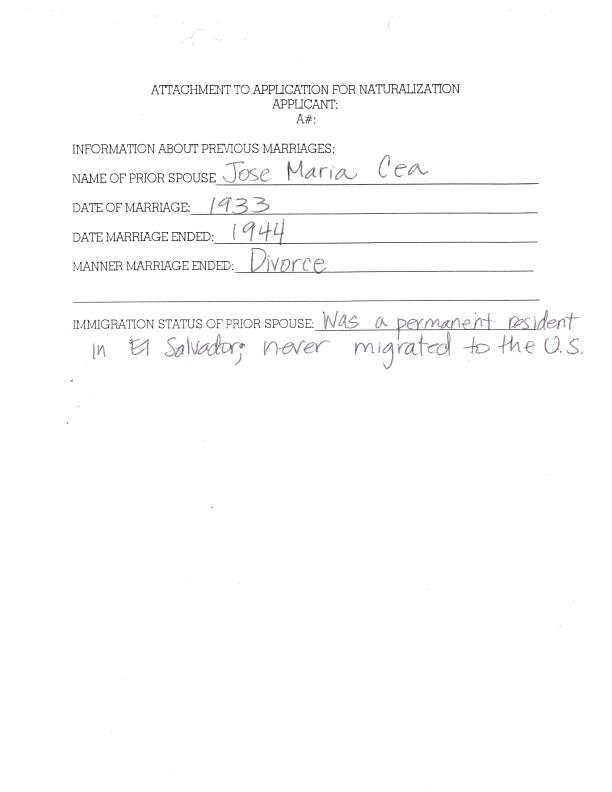 ATTACHMENT TO APPLICATION FOR NATURALIZATION
APPLICANT:
A#:
INFORMATION ABOUT PREVIOUS MARRIAGES:
NAME OF PRIOR SPOUSE Jose Maria Cea
DATE OF MARRIAGE: 1933
DATE MARRIAGE ENDED: 1944
MANNER MARRIAGE ENDED: Divorce
IMMIGRATION STATUS OF PRIOR SPOUSE: Was a permanent resident
in El Salvador; never migrated to the U.S.